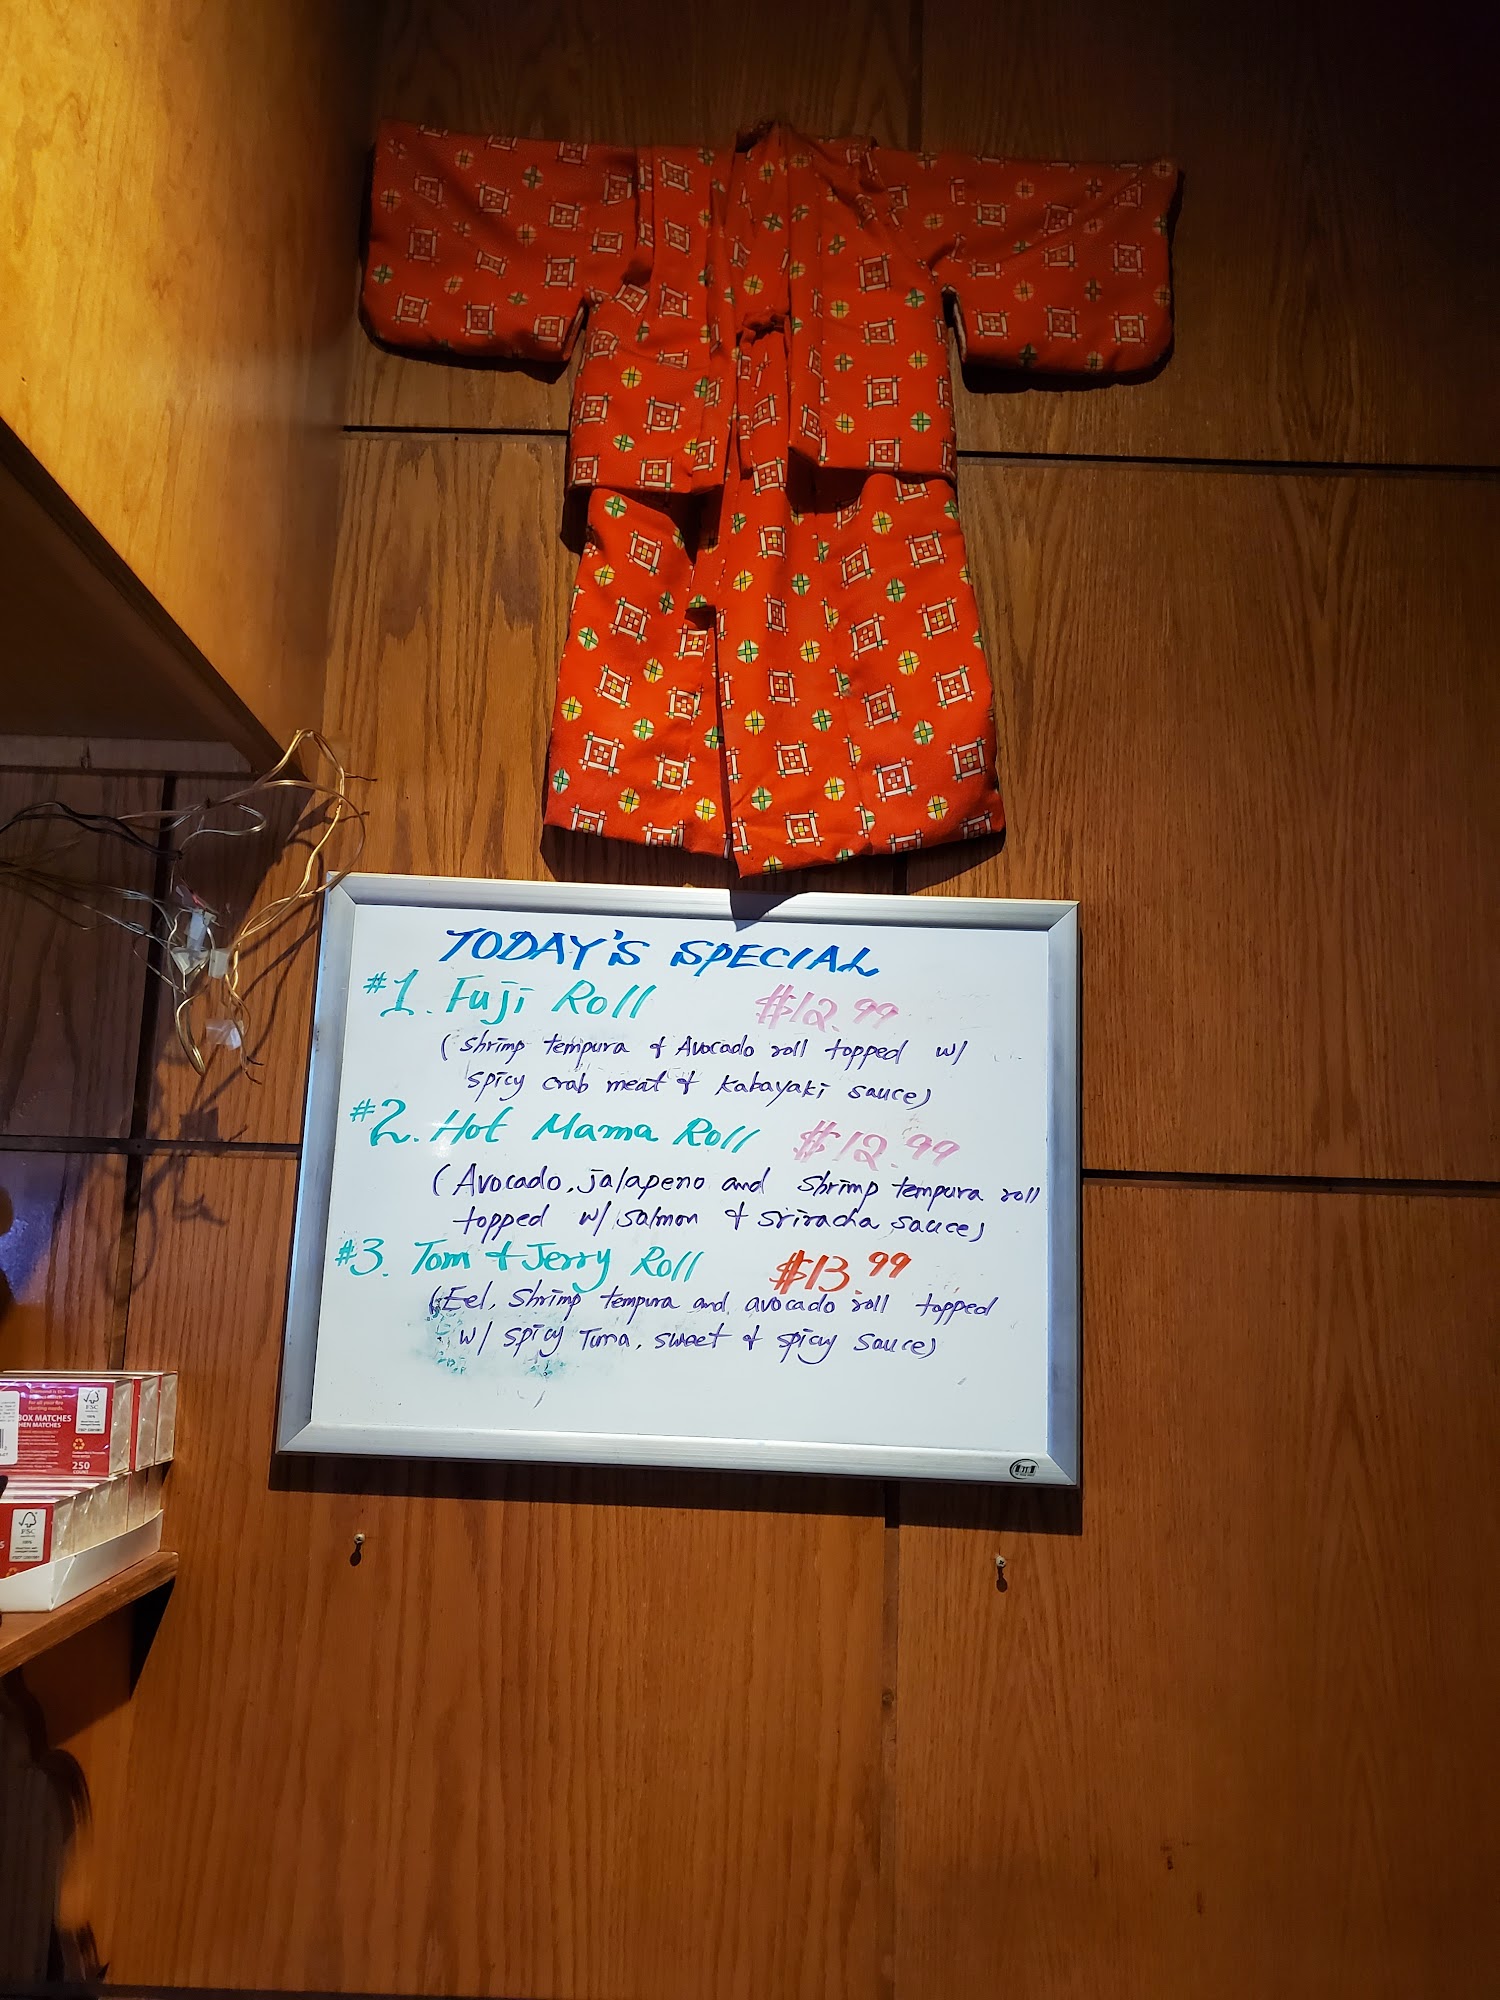 TODAY'S SPECIAL
#1. Fuji Roll $12.99
(Shrimp tempura & Avocado roll topped w/
spicy crab meat & Kabayaki sauce)
#2. Hot Mama Roll $12.99
(Avocado, jalapeno and shrimp tempura roll
topped w/ salmon & sriracha sauce)
#3. Tom & Jerry Roll $13.99
(Eel, Shrimp tempura and avocado roll topped
w/ spicy Tuna, sweet & spicy sauce)
Diamond is the
for all your fire
starting needs.
BOX MATCHES
HEN MATCHES
FSC
100%
250
COUNT
FSC
100%